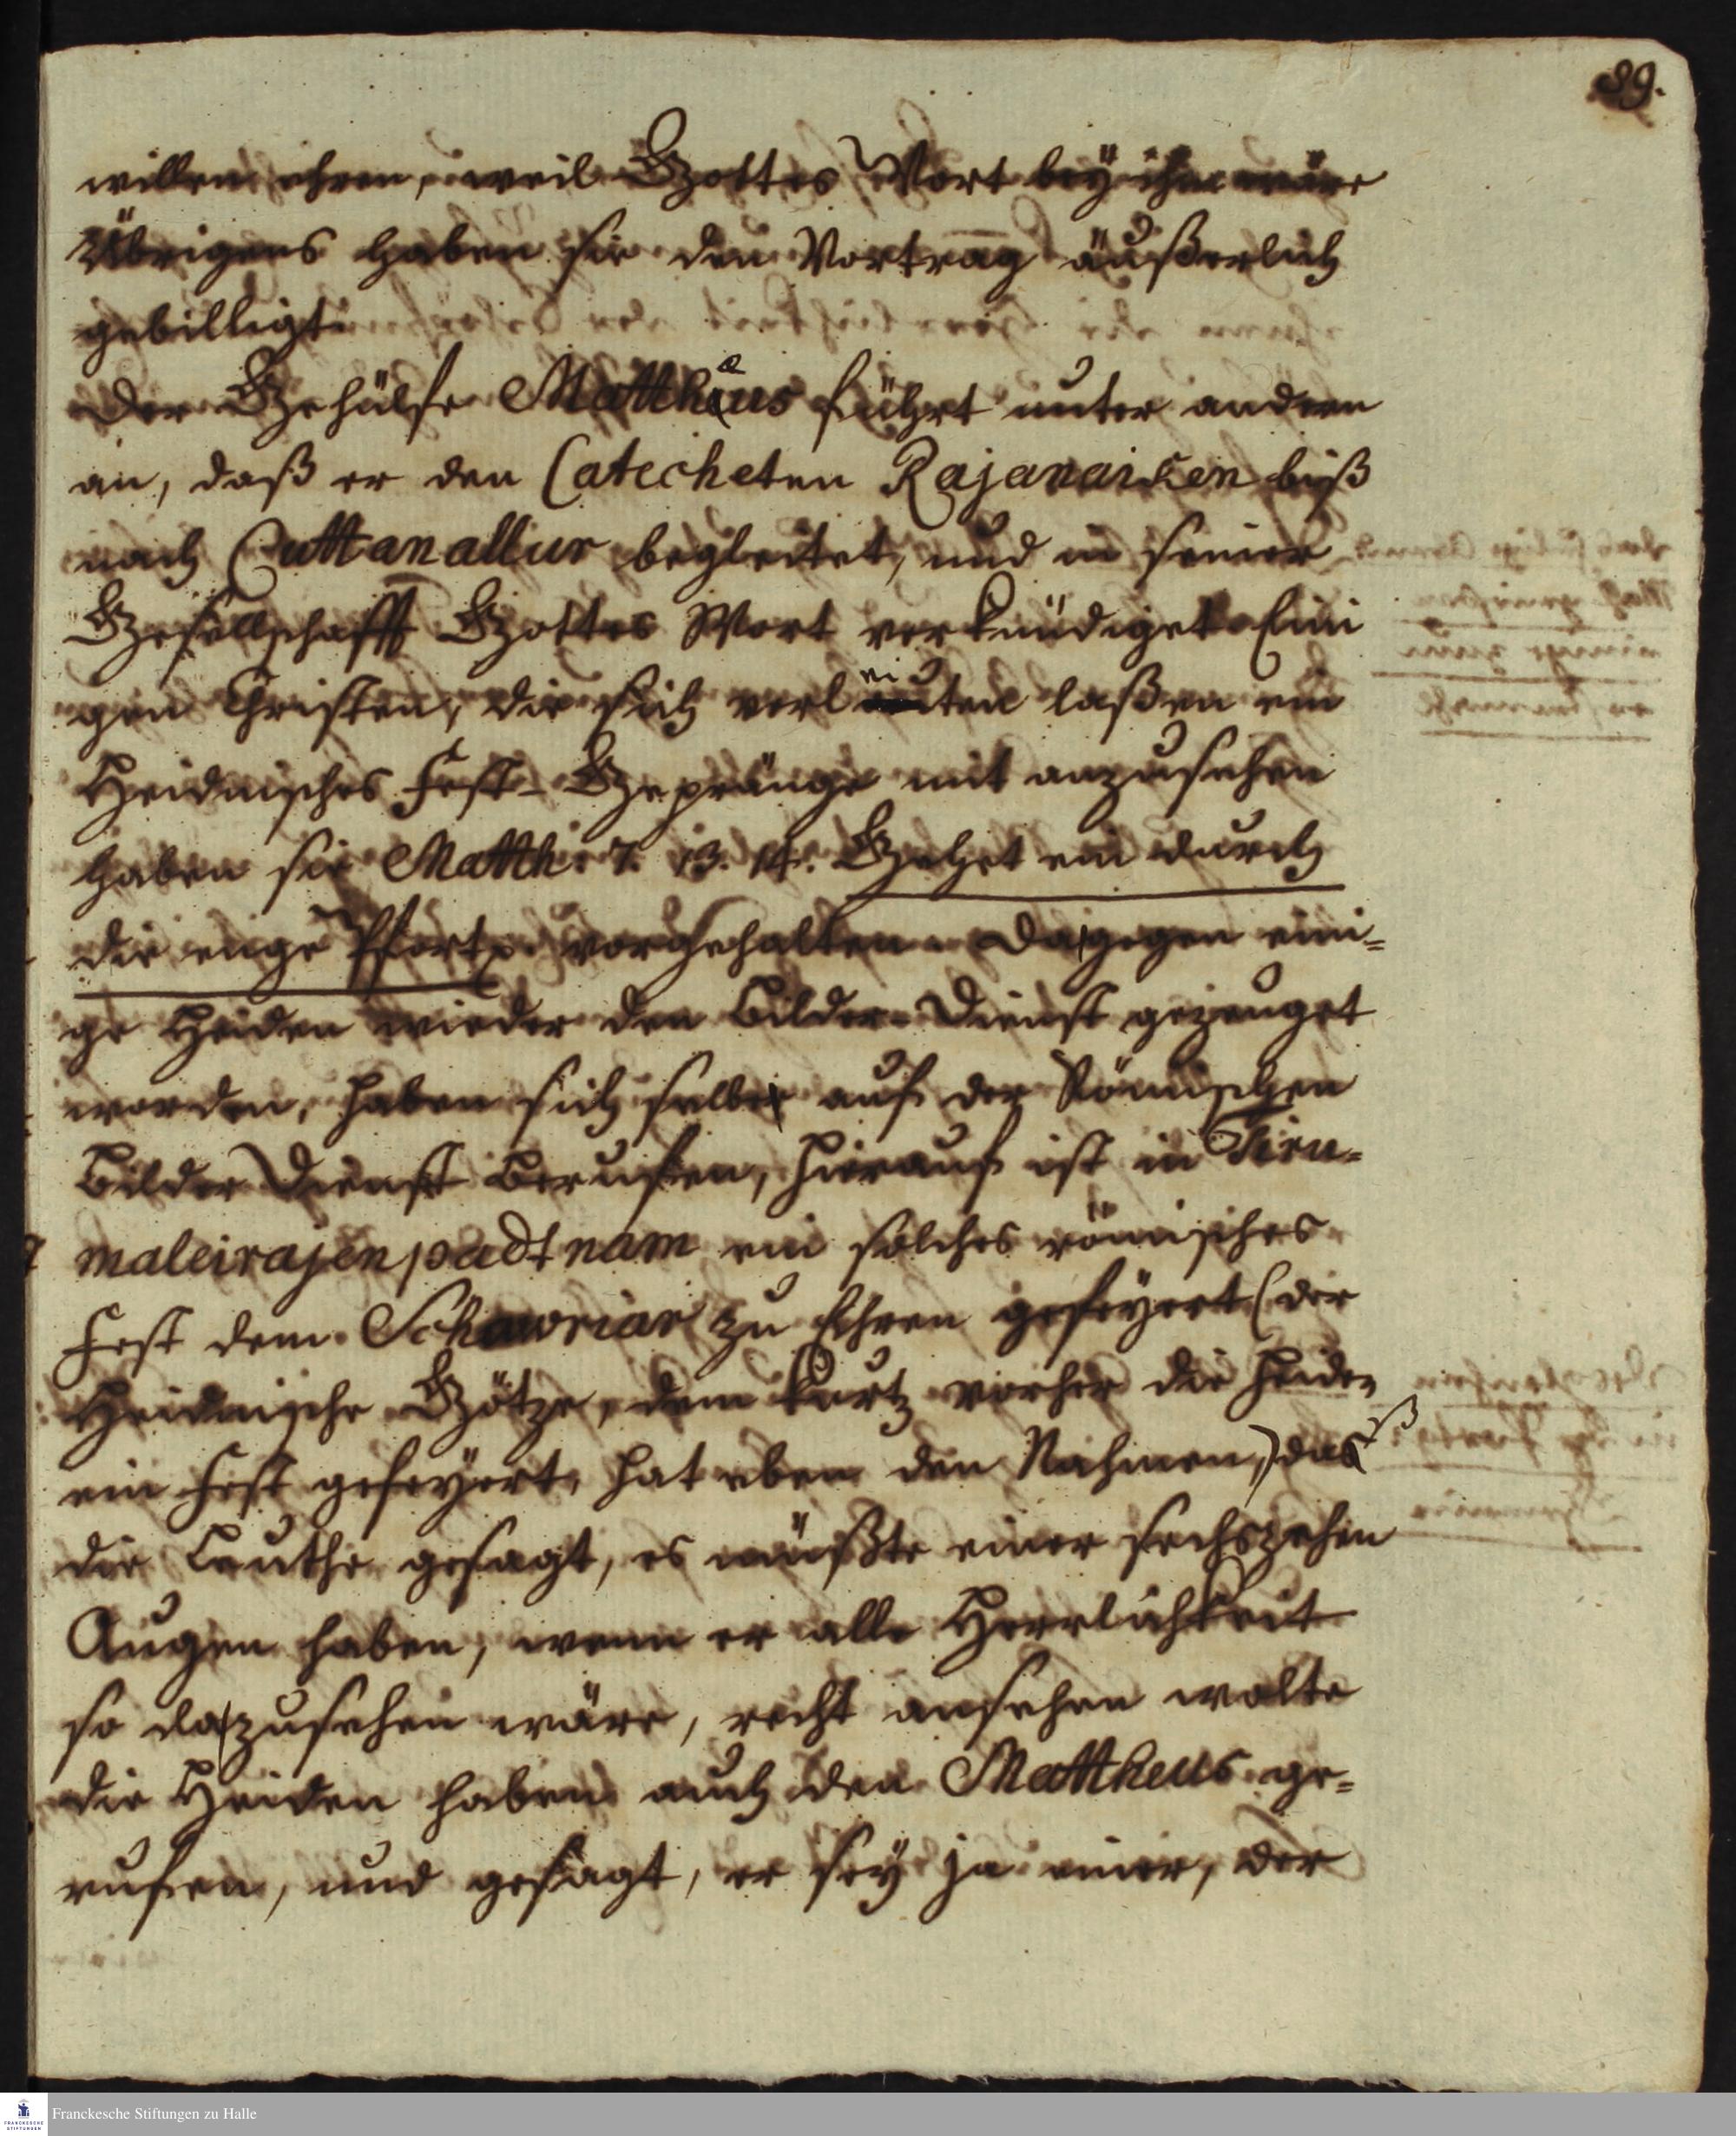 89.
willen ehren, weil Gottes Wort bey ihm wäre
Übrigens haben sie den Vortrag äußerlich
gebilligt.
Der Gehülfe Matthäus führt unter andern
an, daß er den Catecheten Rajanaicken biß
nach Cuttanallur begleitet, und in seiner
Gesellschafft Gottes Wort verkündiget. Eini
gen Christen, die sich verleiten laßen ein
Heidnisches Fest-Gepränge mit anzusehen
haben sie Matth. 7. 13. 14. Gehet ein durch
die enge Pfort p. vorgehalten. Da gegen eini=
ge Heiden wieder den Bilder-Dienst gezeuget
worden, haben sich selbe auf den Römischen
Bilder Dienst Beruffen, hierauf ist in Tiru=
maleirajenpadtnam ein solches römisches
Fest dem Schawriar zu Ehren gefeyert (der
Heidnische Götze, dem kurtz vorher die Heiden
ein Fest gefeyert, hat eben den Nahmen,) daß
die Leuthe gesagt, es müßte einer sechszehen
Augen haben, wenn er alle Herrlichkeit
so da zusehen wäre, recht ansehen wolte
die Heiden haben auch den Mattheus ge=
rufen, und gesagt, er sey ja einer, der
Franckesche Stiftungen zu Halle
FRANCKESCHE
STIFTUNGEN